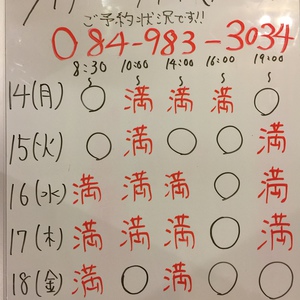 ご予約状況です!!
084-983-3034
8:30 10:00 14:00 16:00 19:00
~ ~ ~ ~ ~
14(月) ○ 満 満 満 ○
15(火) ○ 満 ○ ○ 満
16(水) 満 満 満 ○ 満
17(木) 満 満 満 ○ 満
18(金) 満 ○ 満 ○ ○